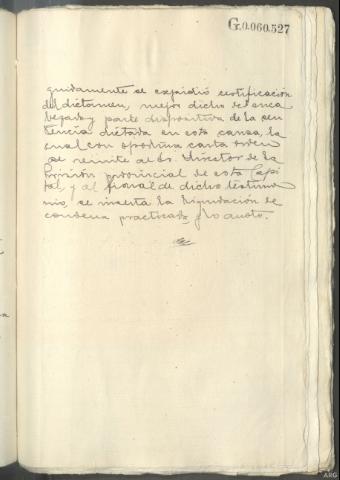 G.0.060.527
guidamente se expidió certificación
del dictamen, mejor dicho del enca
bezado y parte dispositiva de la sen
tencia dictada en esta causa, la
cual con oportuna carta orden
se remite al Sr. Director de la
Prisión provincial de esta Capi
tal, y al final de dicho testimo
nio, se inserta la liquidación de
condena practicada, y lo anoto.
ARG